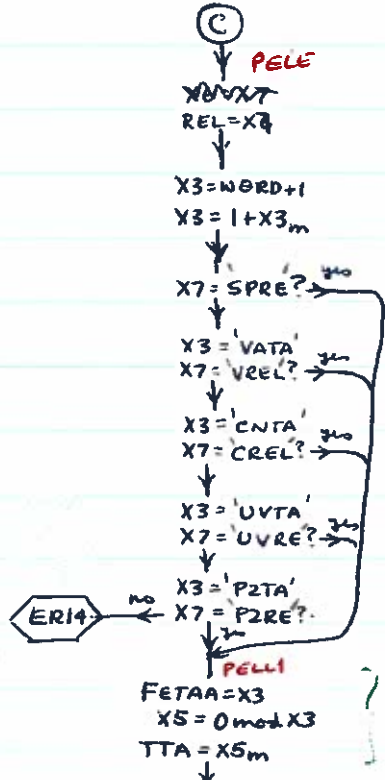 C
PELE
REL=X7
X3=WORD+1
X3=1+X3m
X7='SPRE'? yes
X3='VATA'
X7='VREL'? yes
X3='CNTA'
X7='CREL'? yes
X3='UVTA'
X7='UVRE'? yes
X3='PZTA'
ER14 no X7='PZRE'?
yes
PELL1
FETAA=X3
X5=0 mod X3
TTA=X5m